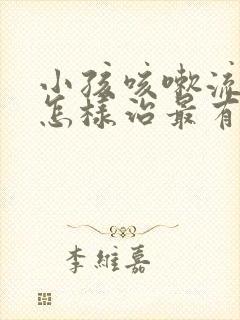 小孩咳嗽流
怎樣治最有
李維嘉